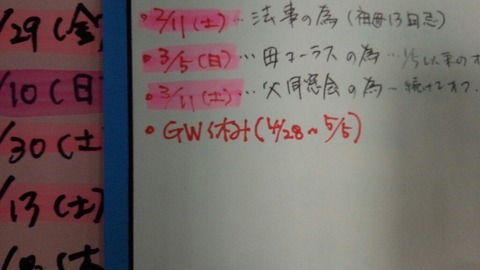 /29(金)
/10(日
/30(土
/13(土)
・2/11(土)…法事の為(祖母13回忌)
・3/5(日)…母コーラスの為…
・3/11(土)…父同窓会の為…続けてオフ
・GW休み(4/28~5/5)